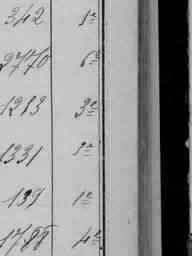 342 1ª
2770 6ª
1213 3ª
1331 1ª
139 1ª
1788 4ª